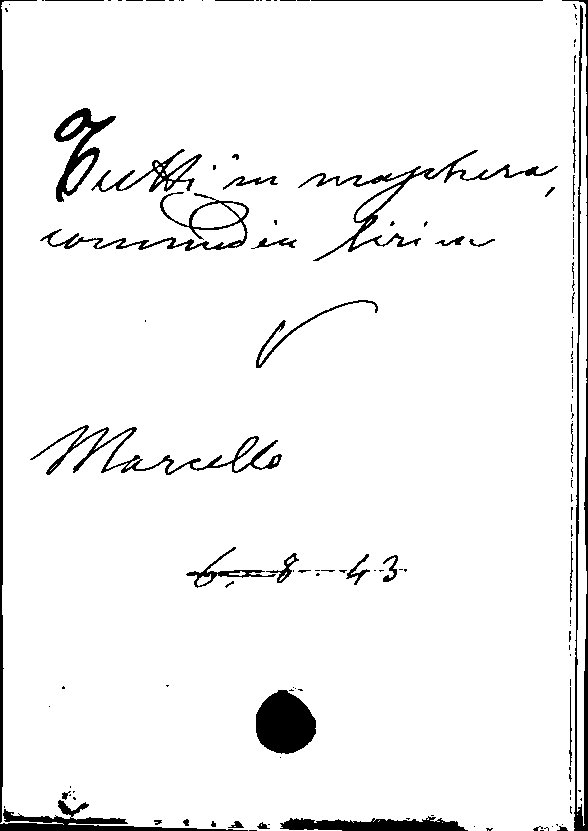 Tutti in maschera,
commedia lirica
Marcello
6. 8. 43